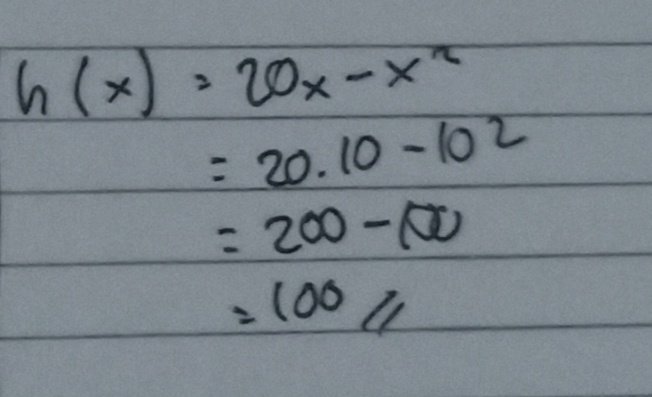 h(x) = 20x - x²
= 20.10 - 10²
= 200 - 100
= 100 //